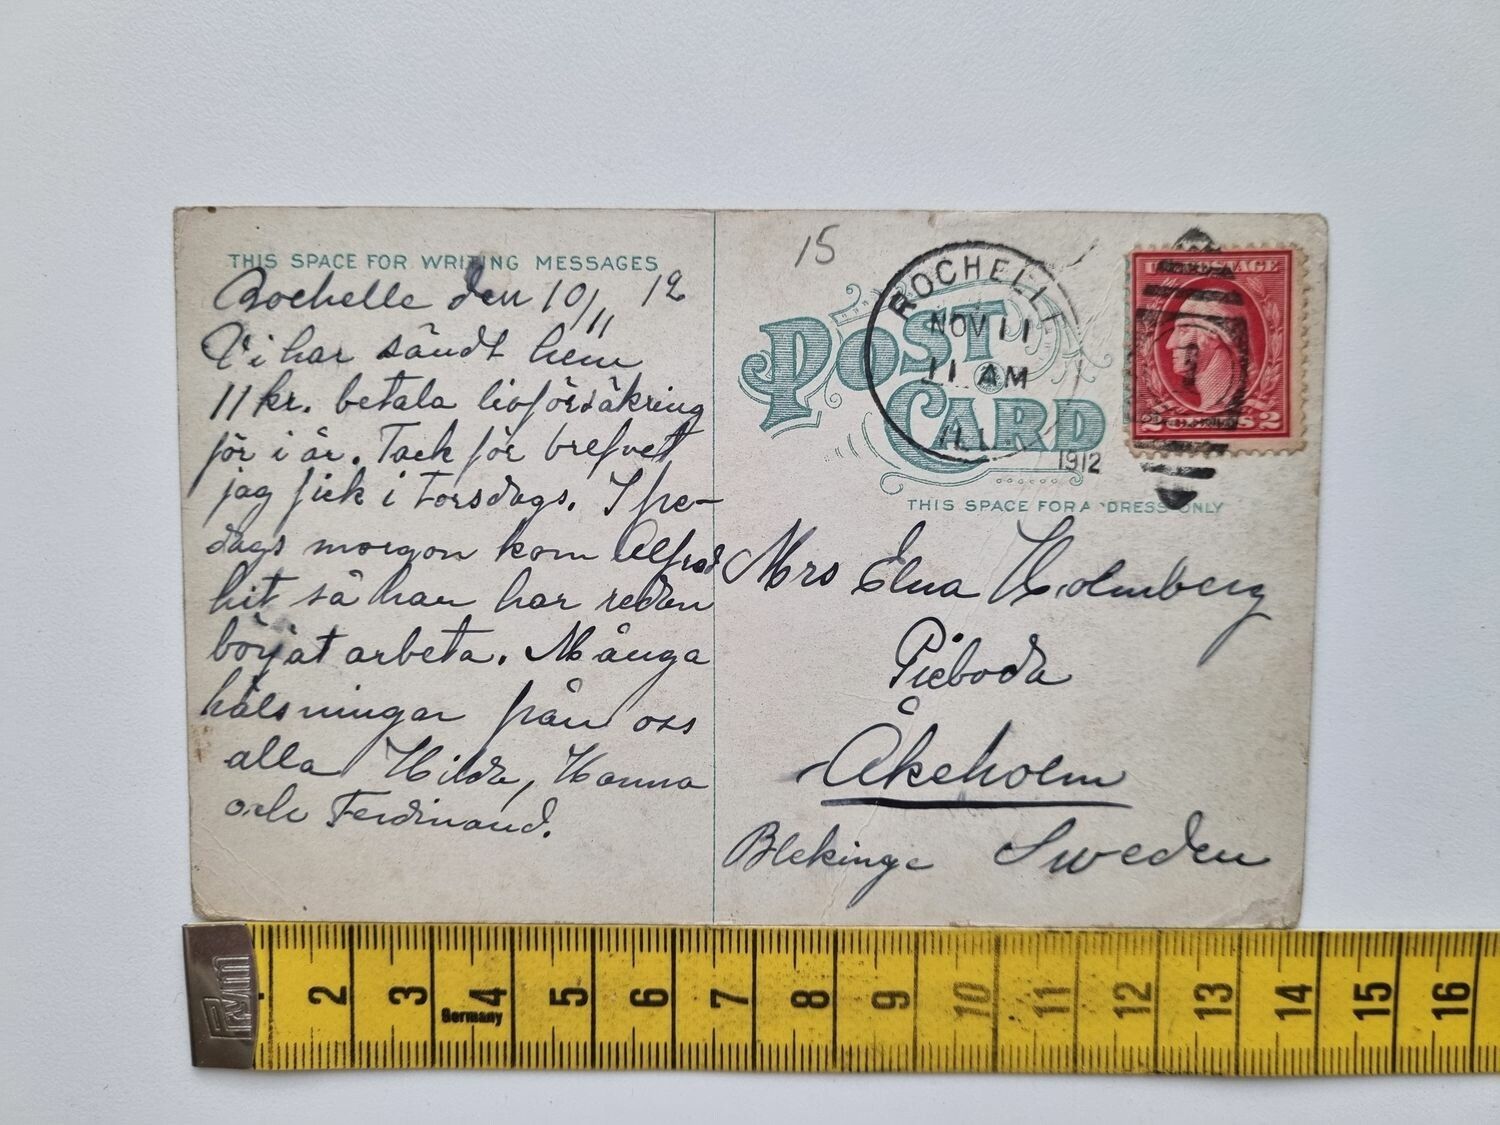 THIS SPACE FOR WRITING MESSAGES
Rochelle den 10/11 12
Vi har sändt hem
11 kr. betala lifförsäkring
för i år. Tack för brefvet
jag fick i torsdags. I fre-
dags morgon kom Alfred
hit så han har redan
börjat arbeta. Många
hälsningar från oss
alla Hilda, Hanna
och Ferdinand.
15
ROCHELLE
NOV 11
11 AM
ILL.
1912
U.S. POSTAGE
2 CENTS 2
POST CARD
THIS SPACE FOR ADDRESS ONLY
Mrs Elna Holmberg
Pieboda
Åkeholm
Blekinge Sweden
Prym
2 3 4 5 6 7 8 9 10 11 12 13 14 15 16
Germany